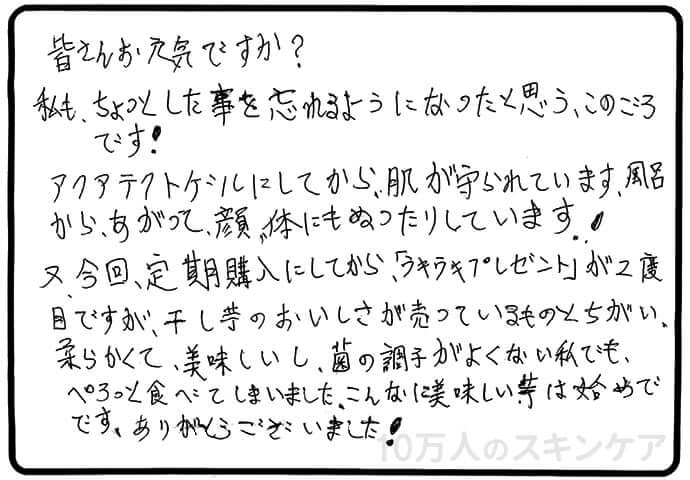 皆さんお元気ですか?
私も、ちょっとした事を忘れるようになったと思う、このごろ
です!
アクアテクトゲルにしてから、肌が守られています、風呂
から、あがって、顔、体にもぬったりしています。!
又、今回、定期購入にしてから、「ウキウキプレゼント」が2度
目ですが、干し芋のおいしさが売っているものとちがい、
柔らかくて、美味しいし、歯の調子がよくない私でも、
ペろっと食べてしまいました、こんなに美味しい芋は始めで
です。ありがとうございました!
10万人のスキンケア